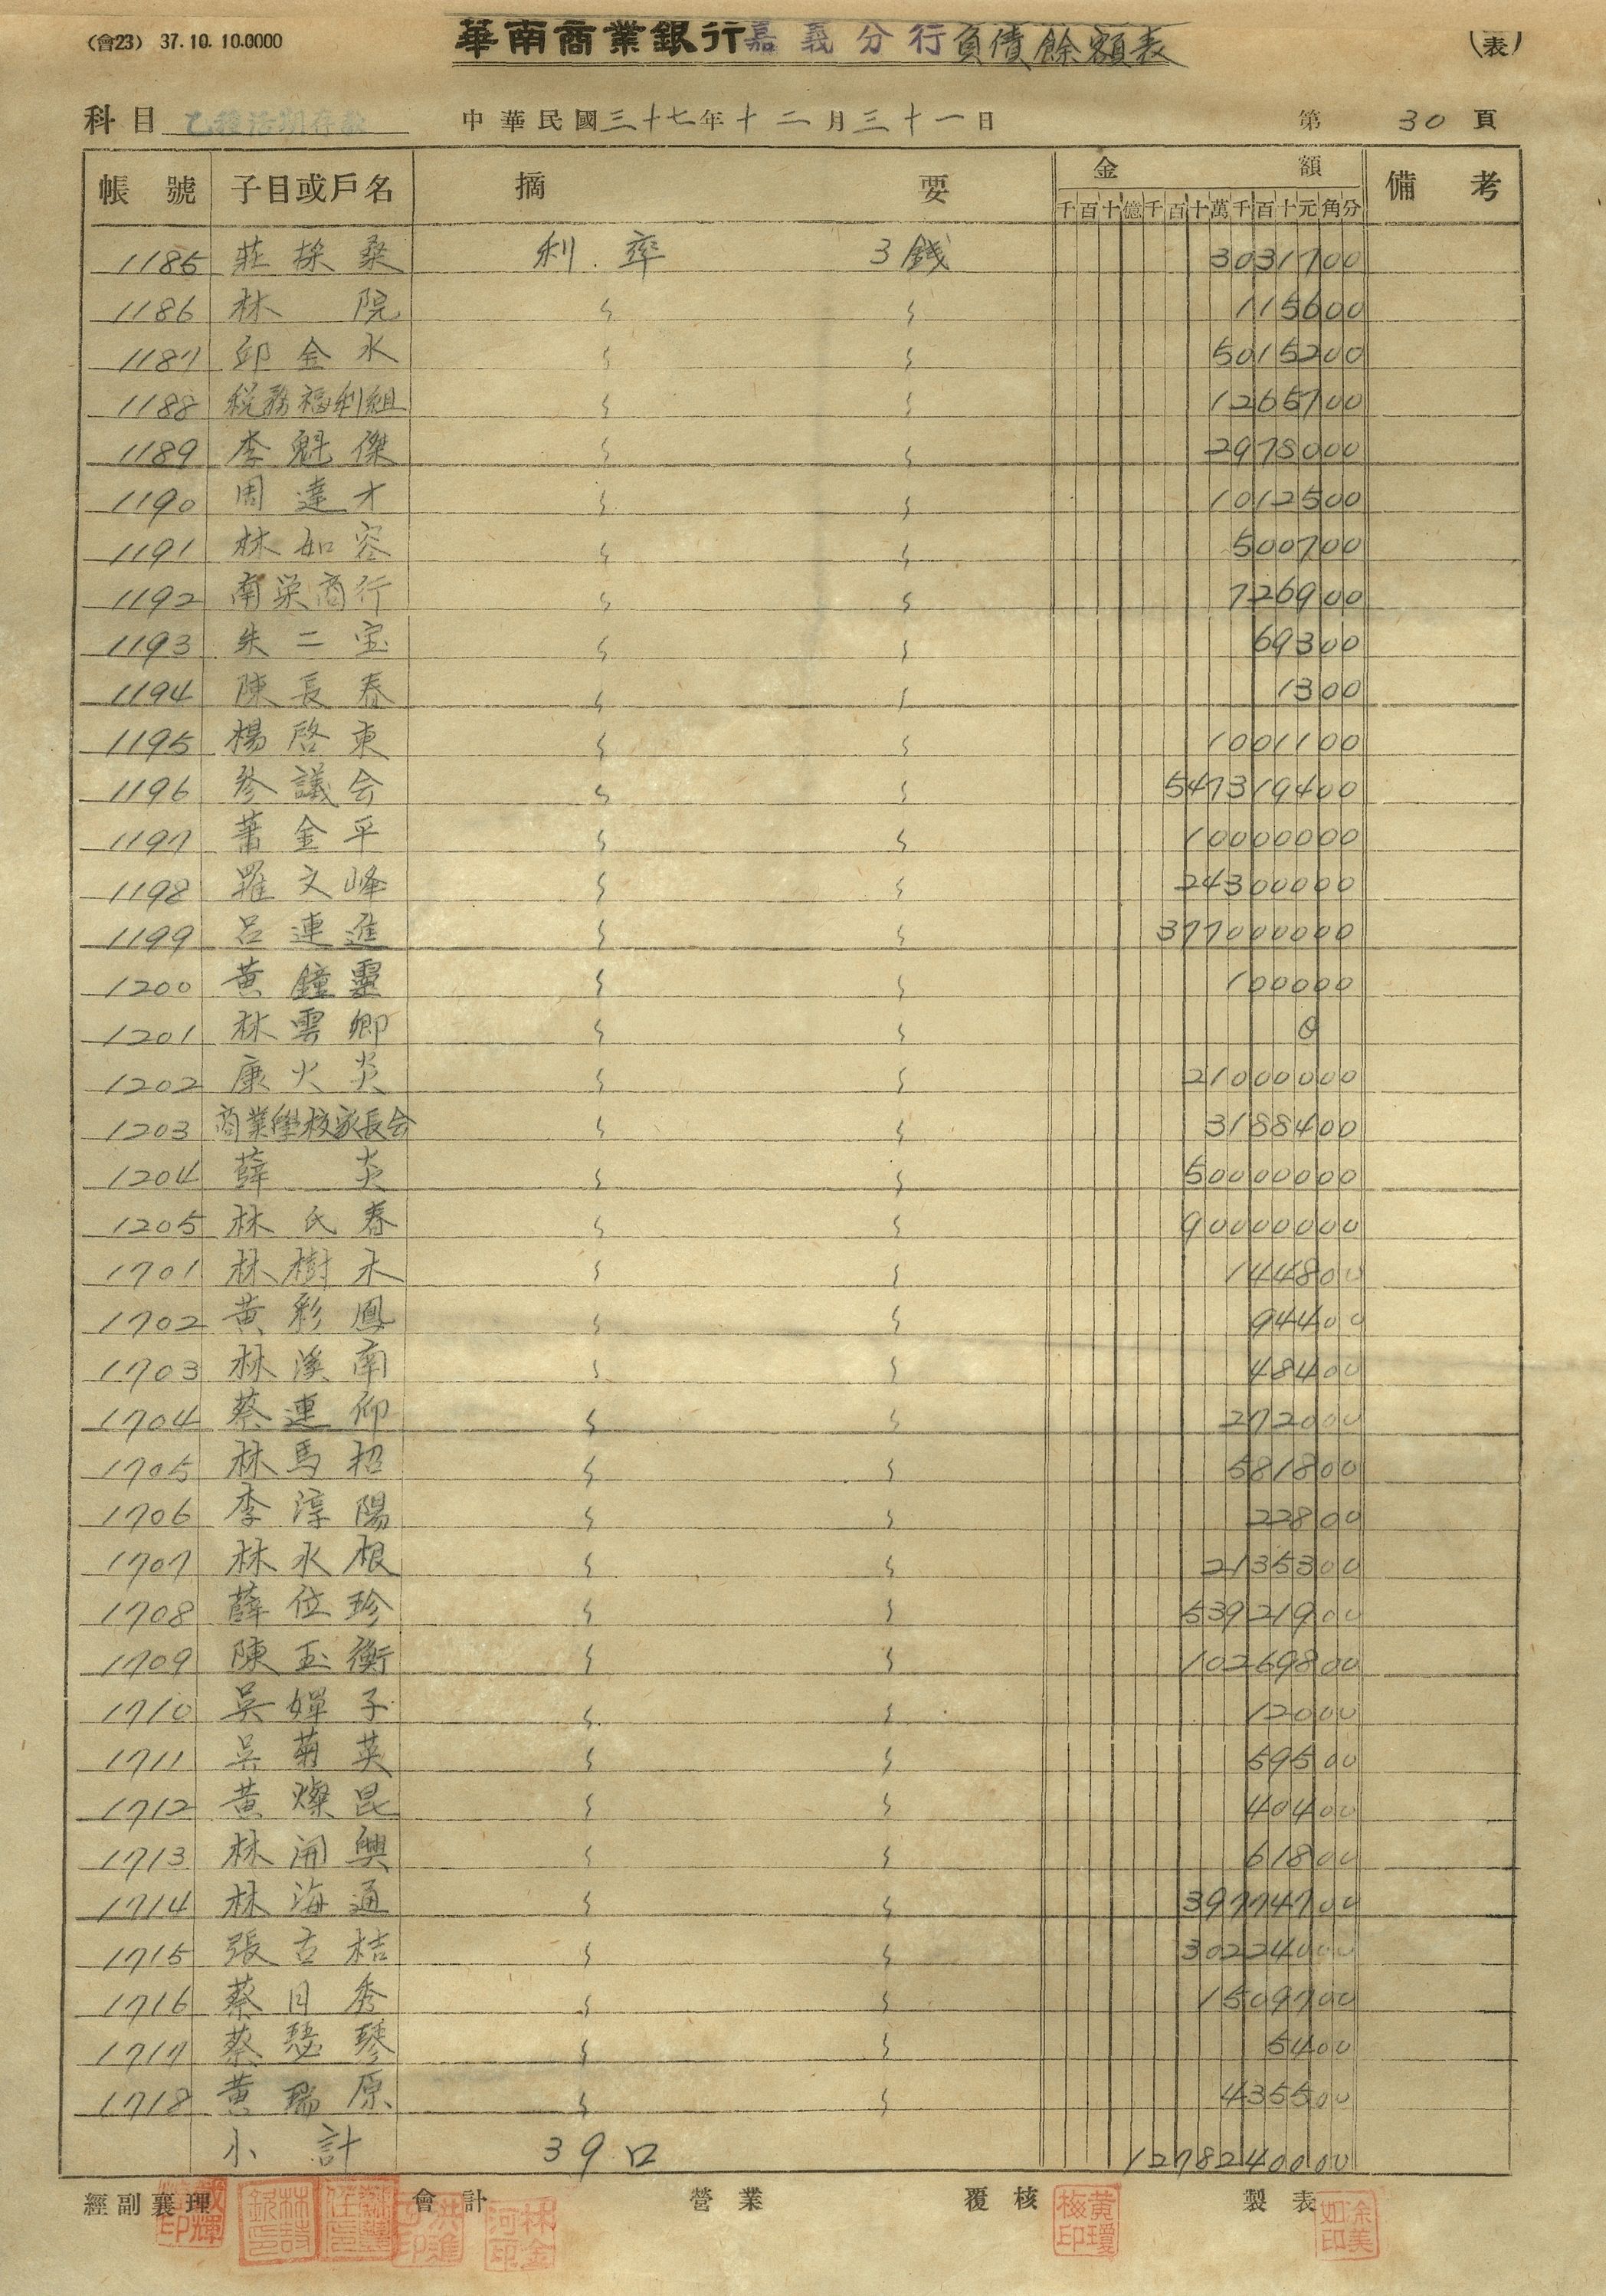 (會23) 37.10.10.0000 華南商業銀行嘉義分行負債餘額表 (表)
科目 乙種活期存款 中華民國三十七年十二月三十一日 第 30 頁
帳號 子目或戶名 摘要 金額 備考
千百十億千百十萬千百十元角分
1185 莊採桑 利率 3錢 3031700
1186 林院 〃 〃 115600
1187 邱金水 〃 〃 5015200
1188 稅務福利組 〃 〃 1265700
1189 李魁傑 〃 〃 2978000
1190 周達才 〃 〃 1012500
1191 林如容 〃 〃 500700
1192 南榮商行 〃 〃 726900
1193 朱二宝 〃 〃 69300
1194 陳長春 〃 〃 1300
1195 楊啓東 〃 〃 1001100
1196 參議会 〃 〃 547319400
1197 蕭金平 〃 〃 10000000
1198 羅文峰 〃 〃 24300000
1199 呂連進 〃 〃 377000000
1200 黃鐘靈 〃 〃 100000
1201 林雲卿 〃 〃 0
1202 康火炎 〃 〃 21000000
1203 商業學校家長会 〃 〃 3188400
1204 薛炎 〃 〃 50000000
1205 林氏春 〃 〃 90000000
1701 林樹木 〃 〃 144800
1702 黃彩鳳 〃 〃 94400
1703 林溪南 〃 〃 48400
1704 蔡連仰 〃 〃 272000
1705 林馬招 〃 〃 581800
1706 李淳陽 〃 〃 22800
1707 林水根 〃 〃 2135300
1708 薛位珍 〃 〃 53921900
1709 陳玉衡 〃 〃 10269800
1710 吳嬋子 〃 〃 12000
1711 吳菊英 〃 〃 59500
1712 黃燦昆 〃 〃 40400
1713 林開興 〃 〃 61800
1714 林海通 〃 〃 39774700
1715 張古桔 〃 〃 30224000
1716 蔡日秀 〃 〃 1509700
1717 蔡瑟琴 〃 〃 5400
1718 黃瑞原 〃 〃 435500
小計 39口 1278240000
經副襄理 會計 營業 覆核 製表
林金河印 黃瓊梅印 涂美如印